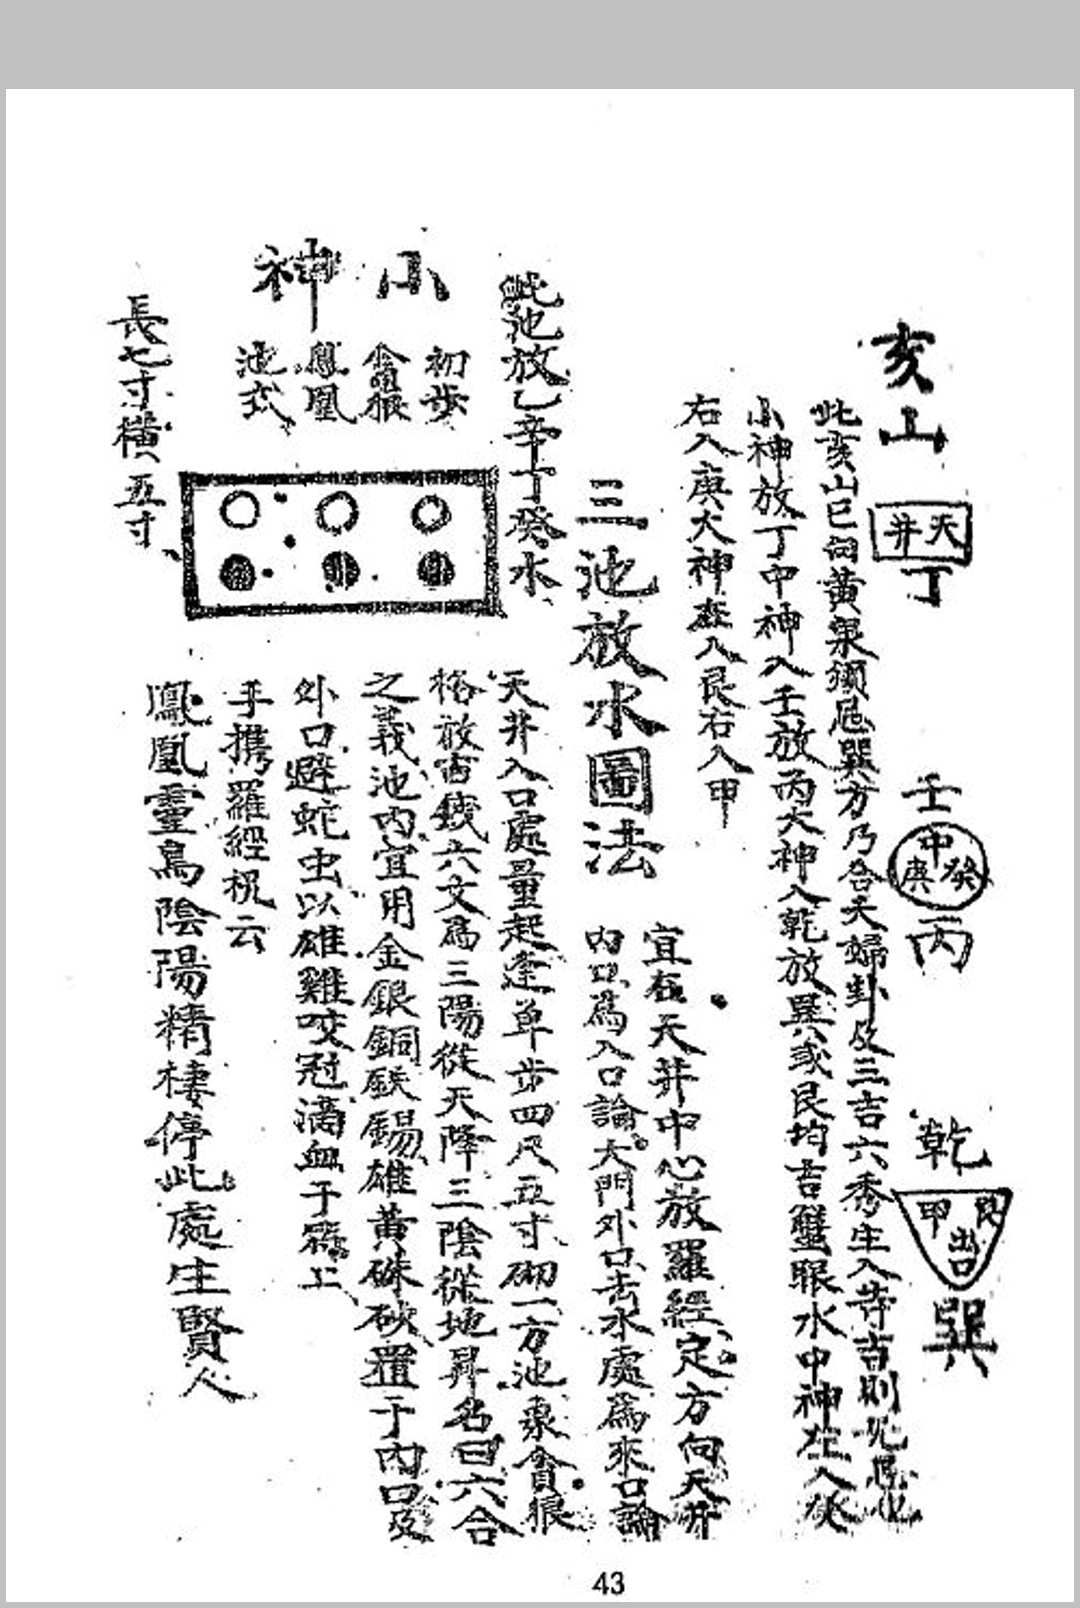 亥山 天井 丁 壬 中 癸 庚 丙 乾 艮 甲 出口 巽
此亥山巳向黃泉須忌巽方乃合夫婦卦及三吉六秀生入等吉則
小神放丁中神入壬放丙大神入乾放巽或艮均吉蟹眼水中神左入癸
右入庚大神左入艮右入甲
三池放水圖法
宜在天井中心放羅經定方向天井
內口為入口論大門外口去水處為來口論
此池放乙辛丁癸水
天井入口處量起逢单步四尺五寸砌一方池象貪狼
格放古錢六文為三陽從天降三陰從地昇名曰六合
之義池內宜用金銀銅鉄錫雄黃硃砂置于內口及
外口避蛇虫以雄雞咬冠滴血于羅上
手携羅經祝云
鳳凰靈鳥陰陽精棲停此處生賢人
小神
初步
貪狼
鳳凰
池式
長七寸橫五寸
43